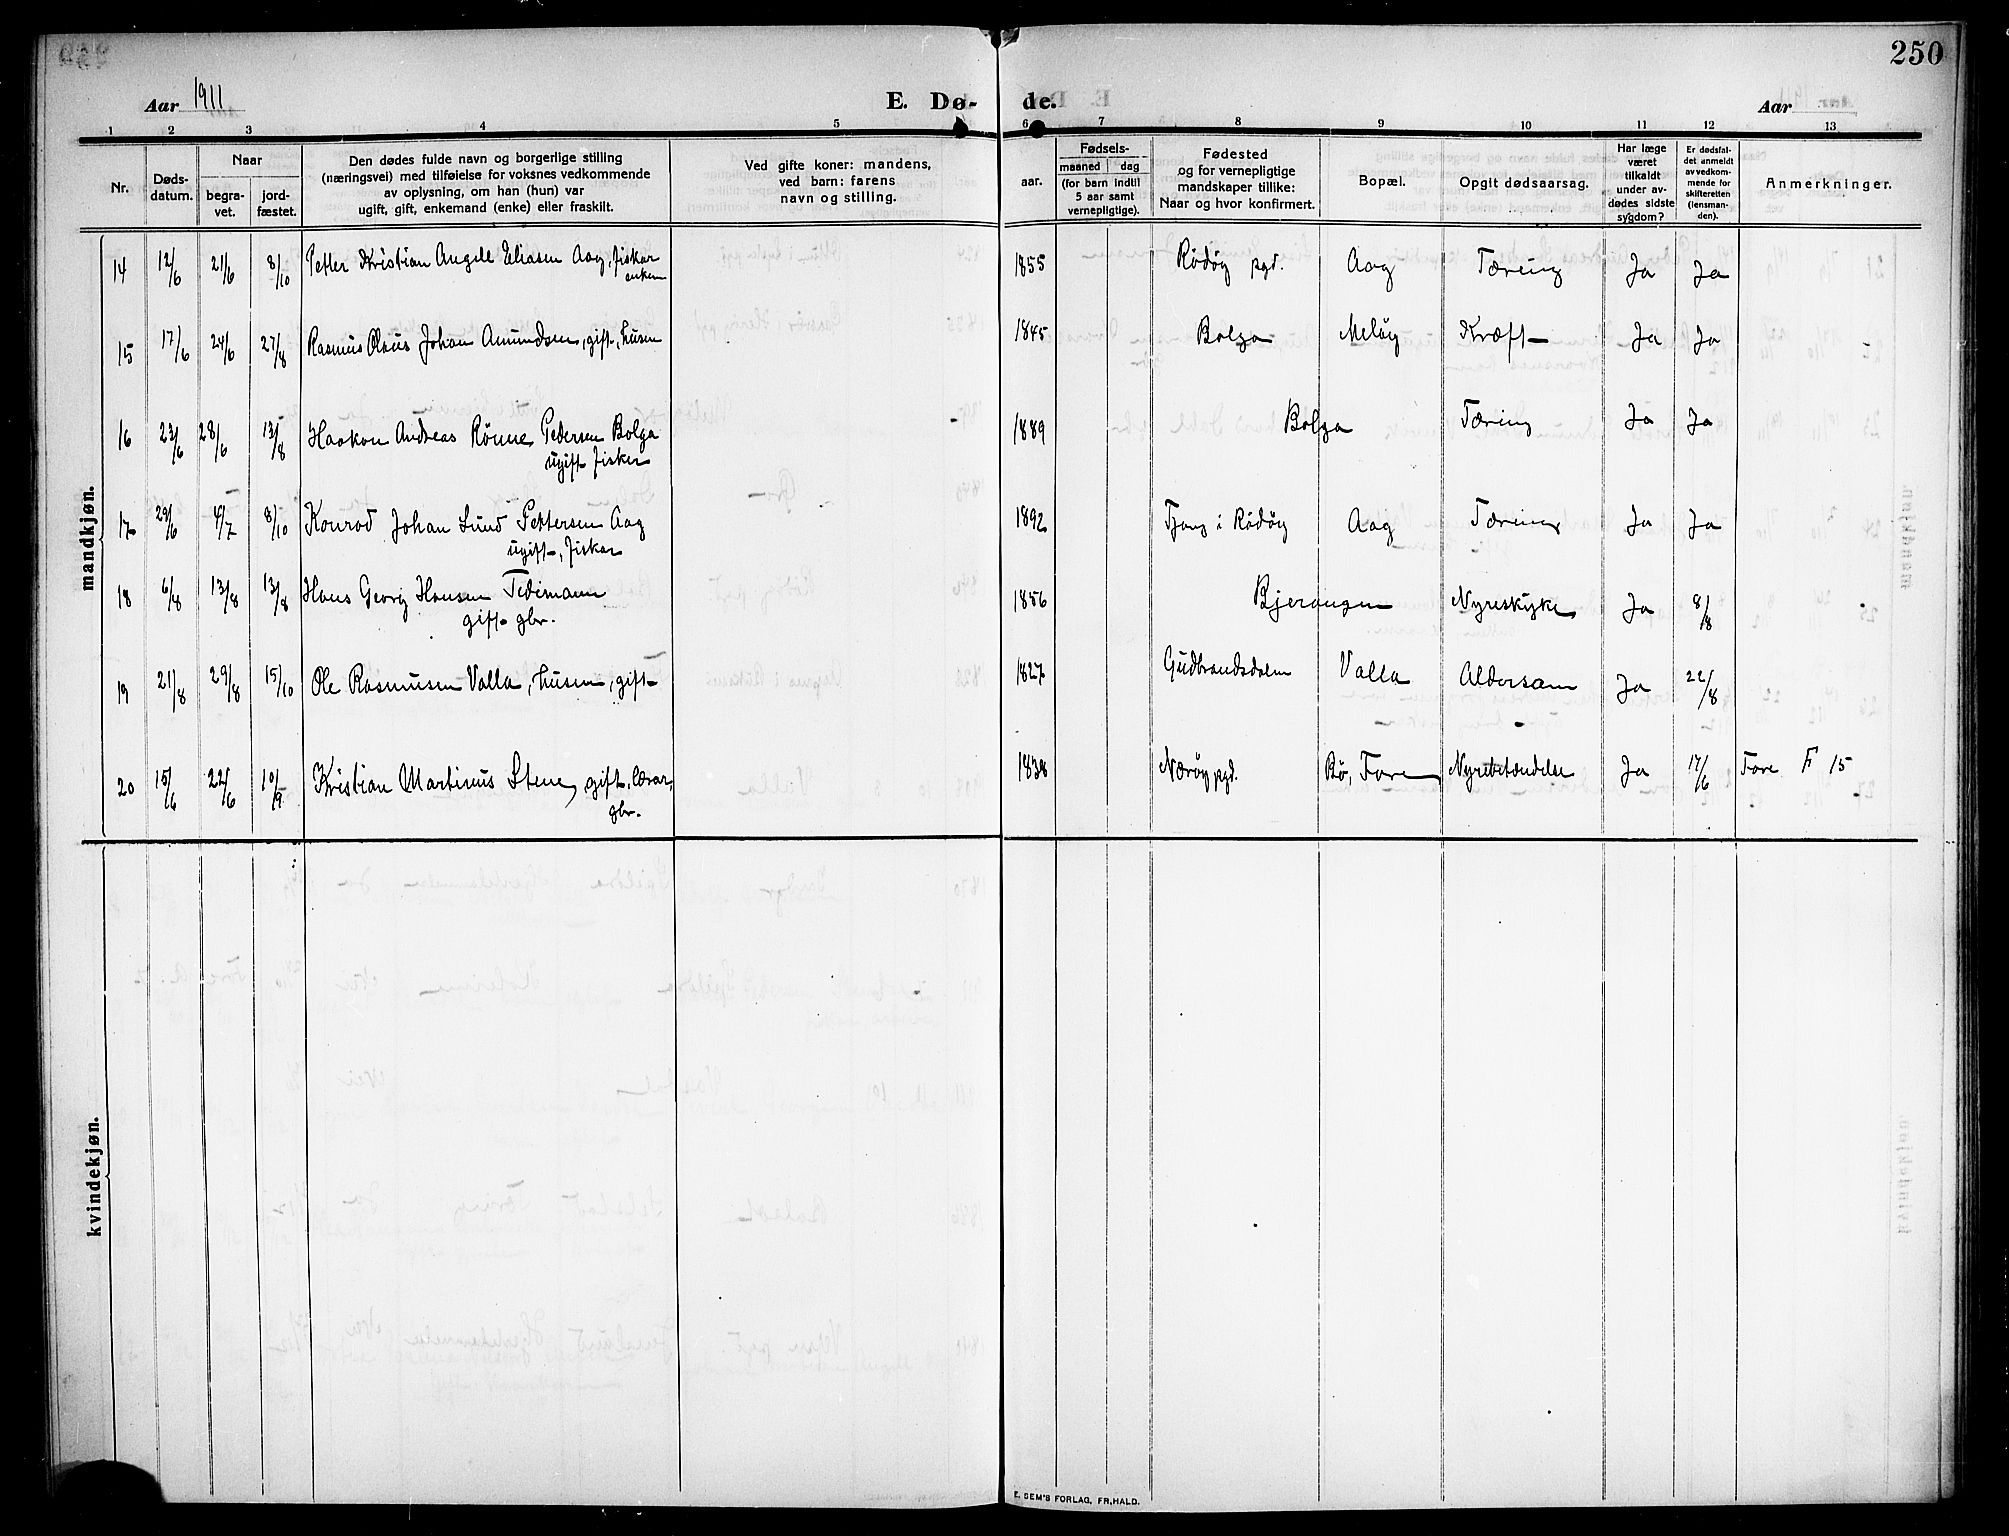 250
Aar 1911 E. Dø- de. Aar
1 2 3 4 5 6 7 8 9 10 11 12 13
Nr. Døds-datum. Naar begra-vet. jord-fæstet. Den dødes fulde navn og borgerlige stilling (næringsvei) med tilføielse for voksnes vedkommende av oplysning, om han (hun) var ugift, gift, enkemand (enke) eller fraskilt. Ved gifte koner: mandens, ved barn: farens navn og stilling. aar. Fødsels- maaned dag (for barn indtil 5 aar samt vernepligtige). Fødested og for vernepligtige mandskaper tillike: Naar og hvor konfirmert. Bopæl. Opgit dødsaarsag. Har læge været tilkaldt under av-dødes sidste sygdom? Er dødsfal-det anmeldt av vedkom-mende for skifteretten (lensman-den). Anmerkninger.
mandkjøn.
14 12/6 21/6 8/10 Petter Kristian Angell Eliasen Aag, fisker 1855 Rödöy pgd. Aag Tæring Ja Ja
enkem
15 17/6 24/6 27/8 Rasmus Olaus Johan Amundsen, gift, husm 1845 Bolga Melöy Kræft Ja Ja
16 23/6 28/6 13/8 Haakon Andreas Rönne Pedersen Bolga 1889 Bolga Tæring Ja Ja
ugift fisker
17 29/6 4/7 8/10 Konrad Johan Lund Pettersen Aag 1892 Tjong i Rödöy Aag Tæring Ja Ja
ugift, fisker
18 6/8 13/8 13/8 Hans Georg Hansen Tidimann 1856 Bjerangen Nyreskyke Ja 8/8
gift gbr.
19 21/8 29/8 15/10 Ole Rasmusen Valla, husm, gift 1827 Gudbrandsdalen Valla Aldersöm Ja 22/8
20 15/6 22/6 10/9 Kristian Martinus Stene, gift, lærar, 1838 Næröy pgd. Bö, Fore Nyrebetændelse Ja 17/6 Fore F 15
gbr.
kvindekjøn.
E. SEM'S FORLAG, FR.HALD.